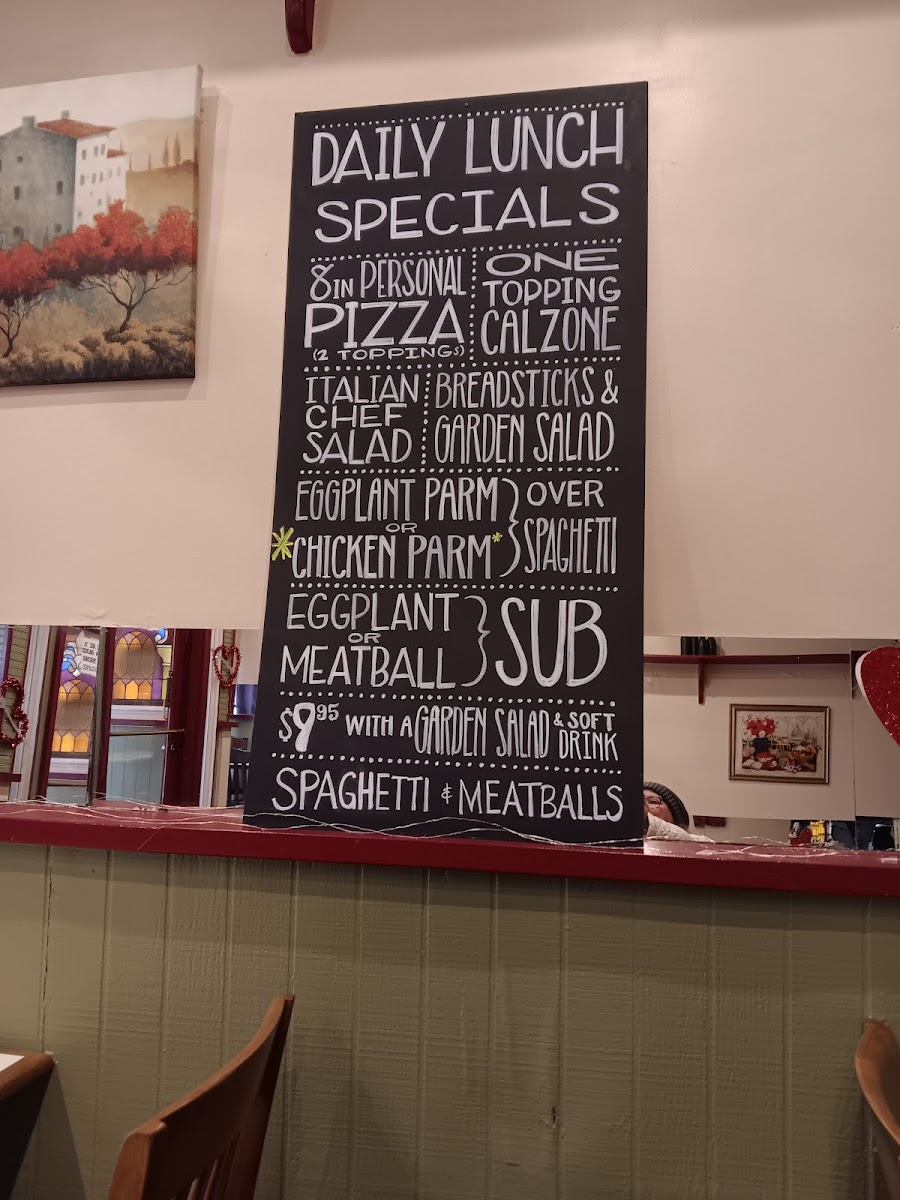 DAILY LUNCH
SPECIALS
8IN PERSONAL
PIZZA
(2 TOPPINGS)
ONE
TOPPING
CALZONE
ITALIAN
CHEF
SALAD
BREADSTICKS &
GARDEN SALAD
EGGPLANT PARM
OR
*CHICKEN PARM*
OVER
SPAGHETTI
EGGPLANT
OR
MEATBALL
SUB
$9.95 WITH A GARDEN SALAD & SOFT DRINK
SPAGHETTI & MEATBALLS